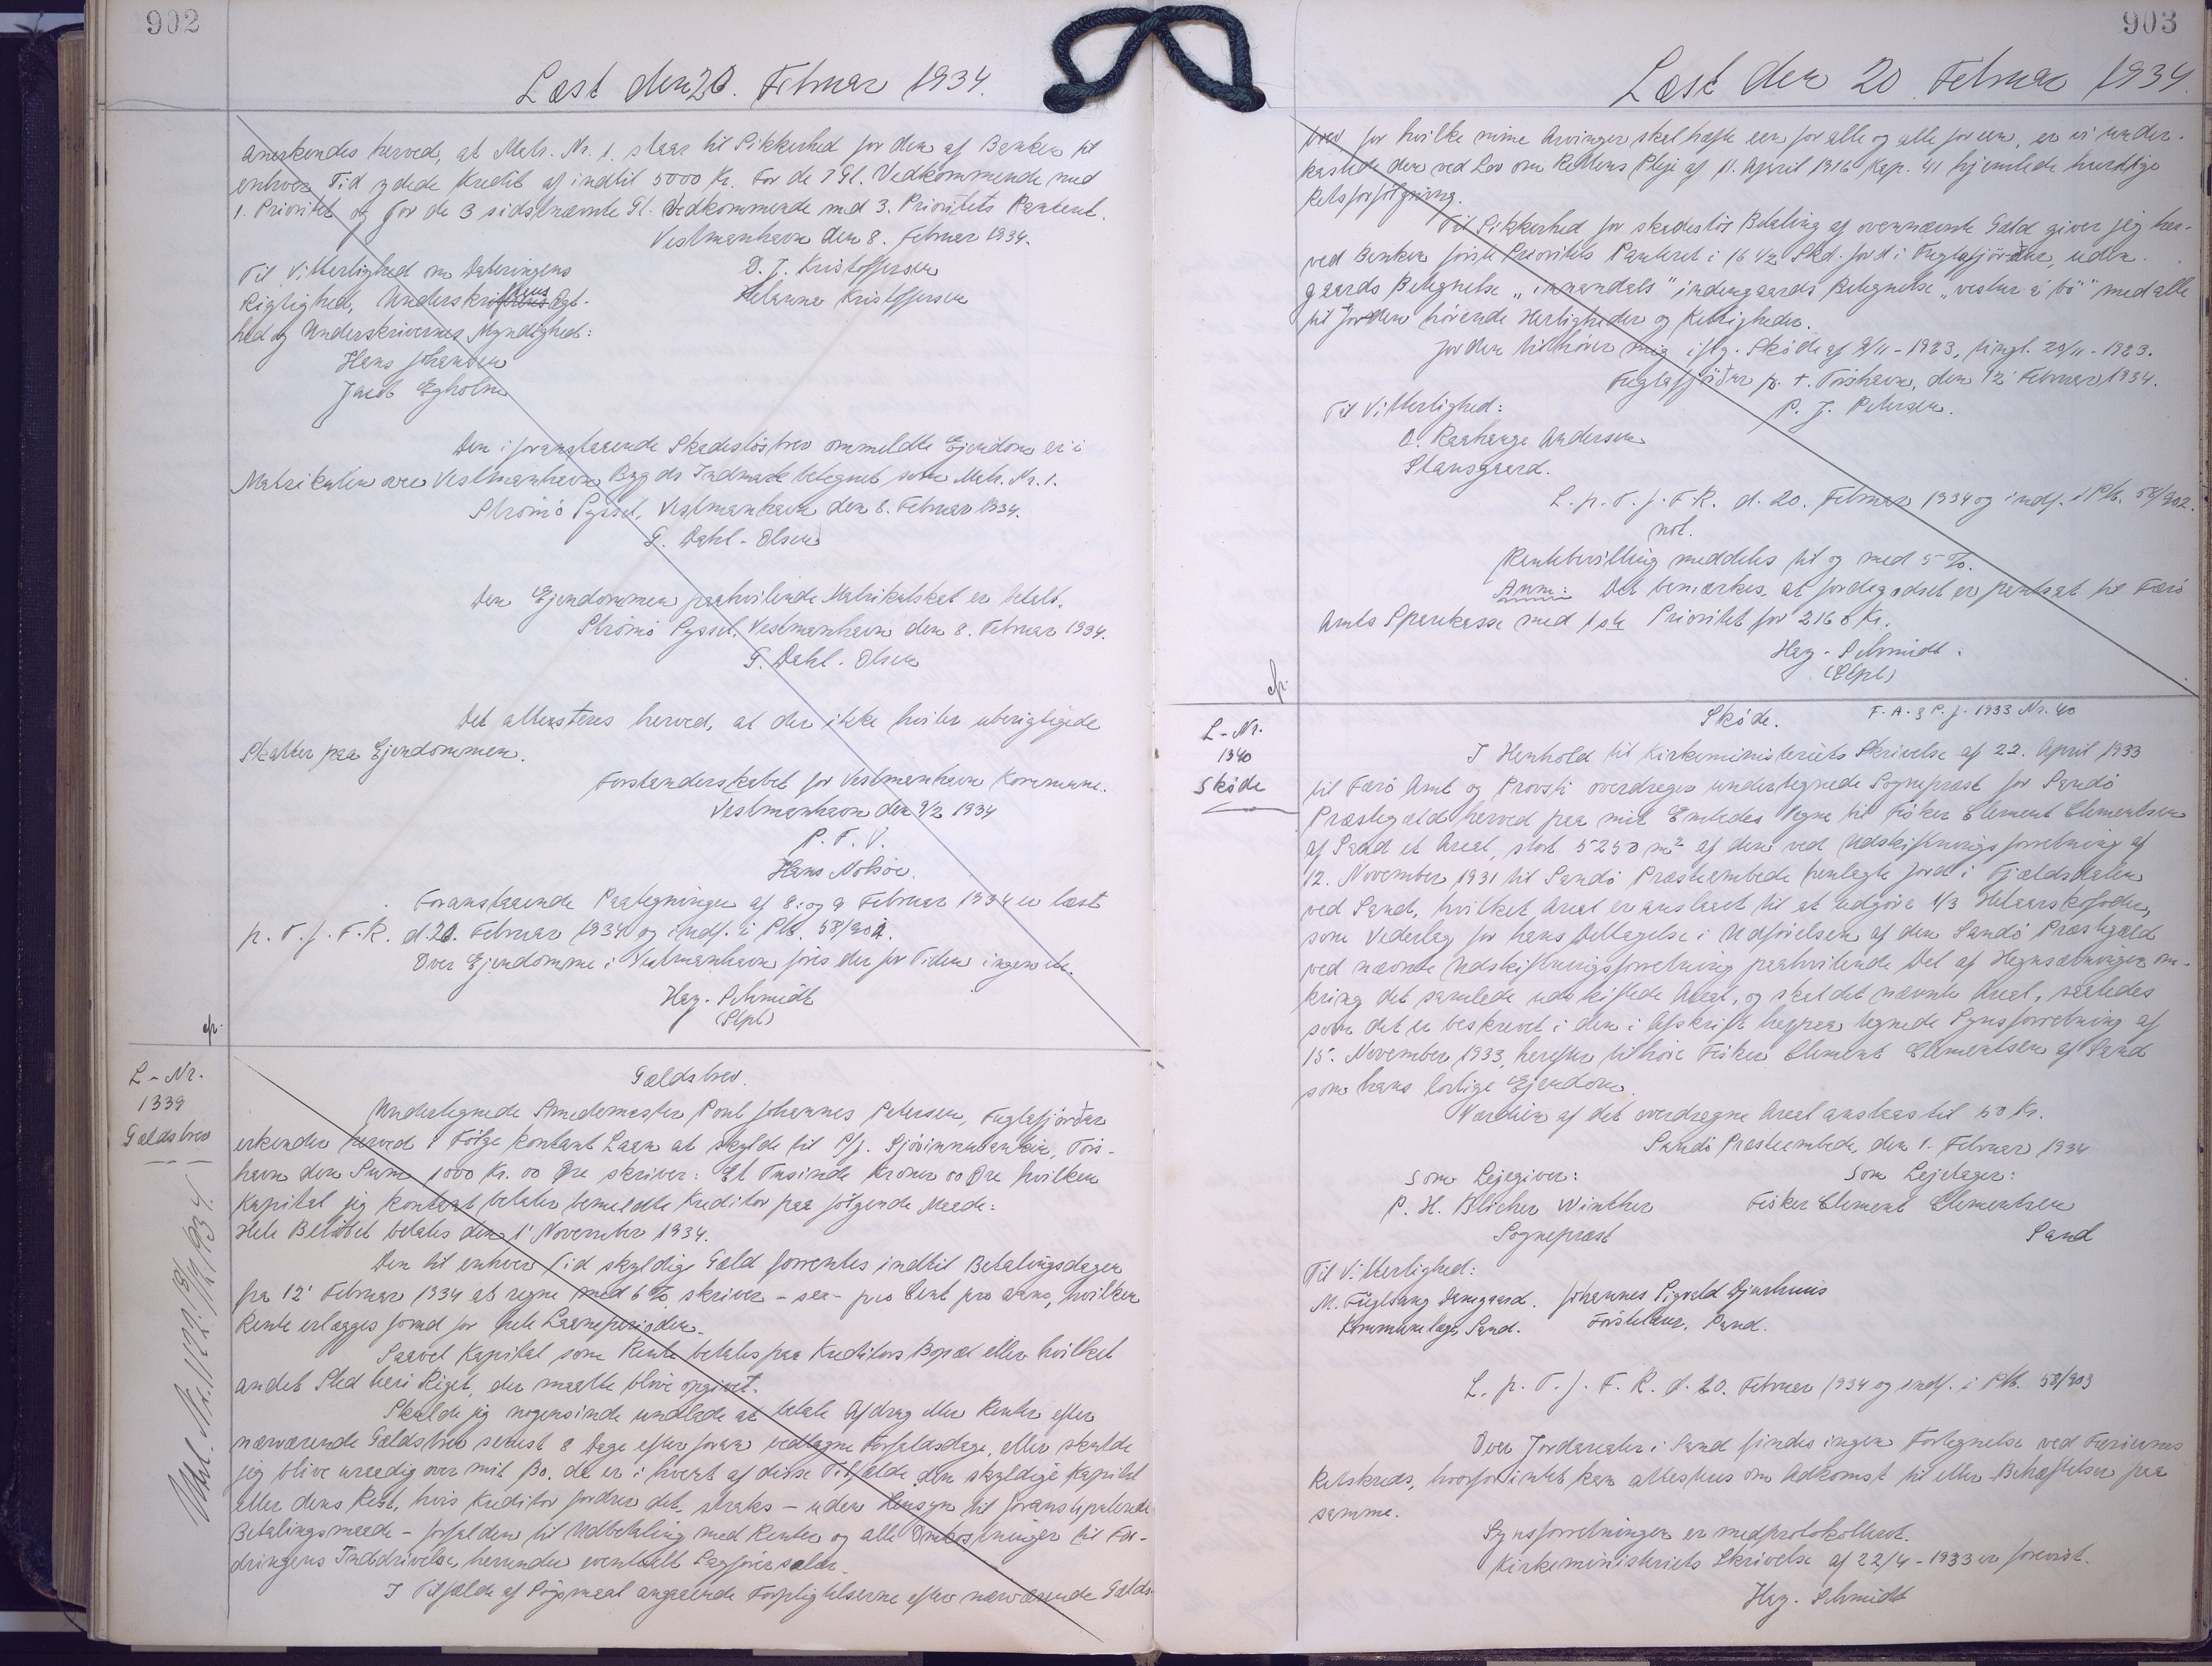 902
Læst den 20. Februar 1934.
anerkendes herved, at Matr. Nr. 1. staar til Sikkerhed for den af Banken til
enhver Tid ydede Kredit af indtil 5000 Kr. For de 7 Gl. Vedkommende med
1. Prioritet og for de 3 sidstnævnte Gl. Vedkommende med 3. Prioritets Panteret.
Vestmanhavn den 8. Februar 1934.
Til Vitterlighed om Dateringens
D. J. Kristoffersen
Rigtighed, Underskriftens Ægt-
Helanna Kristoffersen
hed og Underskrivernes Myndighed:
Hans Johansen
Jacob Egholm
Den i foranstaaende Skadesløsbrev ommeldte Ejendom er i
Matrikulen over Vestmanhavn Bygds Indmark betegnet som Matr. Nr. 1.
Strömö Syssel, Vestmanhavn den 8. Februar 1934.
G. Dahl-Olsen
Den Ejendommen paahvilende Matrikulskat er betalt.
Strömö Syssel, Vestmanhavn den 8. Februar 1934.
G. Dahl-Olsen
Det attesteres herved, at der ikke hviler uberigtigede
Skatter paa Ejendommen.
Forstanderskabet for Vestmanhavn Kommune.
Vestmanhavn den 9/2 1934
P. F. V.
Hans Nolsøe.
Foranstaaende Paategninger af 8. og 9 Februar 1934 er læst
p. T. f. F. R. d. 20. Februar 1934 og indf. i Ptb. 58/902.
Over Ejendomme i Vestmanhavn föres der for Tiden ingen
Hag. Schmidt
(Stpl)
cfr.
L-Nr.
1339
Gældsbrev
Gældsbrev.
Undertegnede Smedemester Poul Johannes Petersen, Fuglafjørður
erkender herved i Følge kontant Laan at skylde til P/f. Sjóvinnubankin, Tórs-
havn den Sum 1000 Kr. 00 Øre skriver: Et Tusinde Kroner 00 Øre hvilken
Kapital jeg kontant betaler bemeldte Kreditor paa følgende Maade:
Hele Beløbet betales den 1' November 1934.
Den til enhver Tid skyldige Gæld forrentes indtil Betalingsdagen
fra 12' Februar 1934 at regne med 6%, skriver - sex - pro Cent pro anno, hvilken
Rente erlægges forud for hele Laaneperioden.
Saavel Kapital som Rente betales paa Kreditors Bopæl eller hvilket
andet Sted heri Riget, der maatte blive opgivet.
Skulde jeg nogensinde undlade at betale Afdrag eller Renter efter
nærværende Gældsbrev senest 8 Dage efter foran vedtagne Forfaldsdage, eller skulde
jeg blive uraadig over mit Bo, da er i hvert af disse Tilfælde den skyldige Kapital
eller dens Rest, hvis Kreditor fordrer det, straks - uden Hensyn til foranstipulerede
Betalingsmaade - forfalden til Udbetaling med Renter og alle Omkostninger til For-
dringens Inddrivelse, herunder eventuelt Sagførersalær.
I Tilfælde af Søgsmaal angaaende Forpligtelserne efter nærværende Gælds-
903
Læst den 20 Februar 1934.
brev for hvilke mine Arvinger skal hæfte een for alle og alle for een, er vi under-
kastede den ved Lov om Rettens Pleje af 11. April 1916 Kap. 41 hjemlede hurtige
Retsforfølgning.
Til Sikkerhed for skadesløs Betaling af ovennævnte Gæld giver jeg her-
ved Banken første Prioritets Panteret i 16 1/2 Skd. Jord i Fuglafjørður, uden-
gaards Betegnelse „innandals" indengaards Betegnelse „vestur á bø" med alle
til Jorden hørende Herligheder og Rettigheder.
Jorden tilhører mig iflg. Skøde af 9/11-1923, tingl. 20/11-1923.
Fuglafjørður p. t. Tórshavn, den 12' Februar 1934.
Til Vitterlighed:
P. J. Petersen.
O. Rauhauge Andersen
Stansgaard.
L. p. T. f. F. R. d. 20. Februar 1934 og indf. i Ptb. 58/902.
not.
Rentebevilling meddeles til og med 5 %.
Anm: Det bemærkes, at Jordegodset er pantsat til Færö
Amts Sparekasse med 1ste Prioritet for 2168 Kr.
Hag. Schmidt.
(Stpl)
cfr.
L-Nr.
1340
Skøde
Skøde.
F. A. & P. J. 1933 Nr. 40
I Henhold til Kirkeministeriets Skrivelse af 22. April 1933
til Færö Amt og Provsti overdrages undertegnede Sognepræst for Sandö
Præstegæld herved paa mit Embedes Vegne til Fisker Clement Clementsen
af Sand et Areal, stort 5250 m² af den ved Udskiftningsforretning af
12. November 1931 til Sandö Præsteembede henlagte Jord i Fjældsdalen
ved Sand, hvilket Areal er anslaaet til at udgøre 1/3 Helaarskofoder,
som Vederlag for hans Deltagelse i Udførelsen af den Sandö Præstegæld
ved nævnte Udskiftningsforretning paahvilende Del af Hegnsætningen om-
kring det samlede udskiftede Areal, og skal det nævnte Areal, saaledes
som det er beskrevet i den i Afskrift herpaa tegnede Synsforretning af
15. November 1933, herefter tilhøre Fisker Clement Clementsen af Sand
som hans lovlige Ejendom.
Værdien af det overdragne Areal anslaas til 50 Kr.
Sandö Præsteembede, den 1. Februar 1934
Som Lejegiver:
Som Lejetager:
P. H. Blicher Winther
Fisker Clement Clementsen
Sognepræst
Sand
Til Vitterlighed:
M. Fuglsang Damgaard.
Johannes Sigvald Djurhuus
Kommunelæge, Sand.
Sand.
L. p. T. f. F. R. d. 20. Februar 1934 og indf. i Ptb. 58/903
Over Jordarealer i Sand findes ingen Fortegnelse ved Færöernes
Retskreds, hvorfor intet kan attesteres om Adkomst til eller Behæftelser paa
samme.
Synsforretningen er medprotokolleret.
Kirkeministeriets Skrivelse af 22/4-1933 er forevist.
Hag. Schmidt